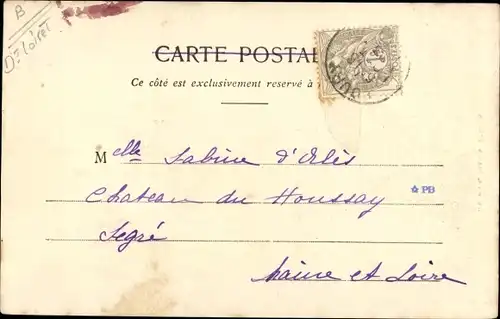 B
Dt Loiret
CARTE POSTALE
Ce côté est exclusivement reservé à
Mlle Sabine d'Orlès
Chateau du Houssay
☆ PB
Segré
Maine et Loire